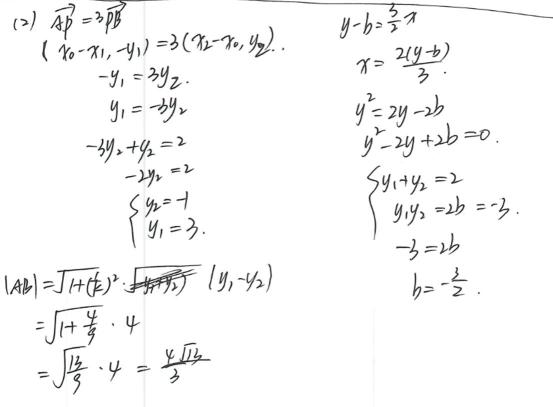 (2) \overrightarrow{AP}=3\overrightarrow{PB}
(x₀-x₁,-y₁)=3(x₂-x₀,y₂).
-y₁=3y₂.
y₁=-3y₂
-3y₂+y₂=2
-2y₂=2
{ y₂=-1
y₁=3.
|AB|=√(1+(1/k)²)·(y₁-y₂)
=√(1+4/9)·4
=√(13/9)·4=4√13/3
y-b=3/2x
x=2(y-b)/3
y²=2y-2b
y²-2y+2b=0.
{ y₁+y₂=2
y₁y₂=2b=-3.
-3=2b
b=-3/2.